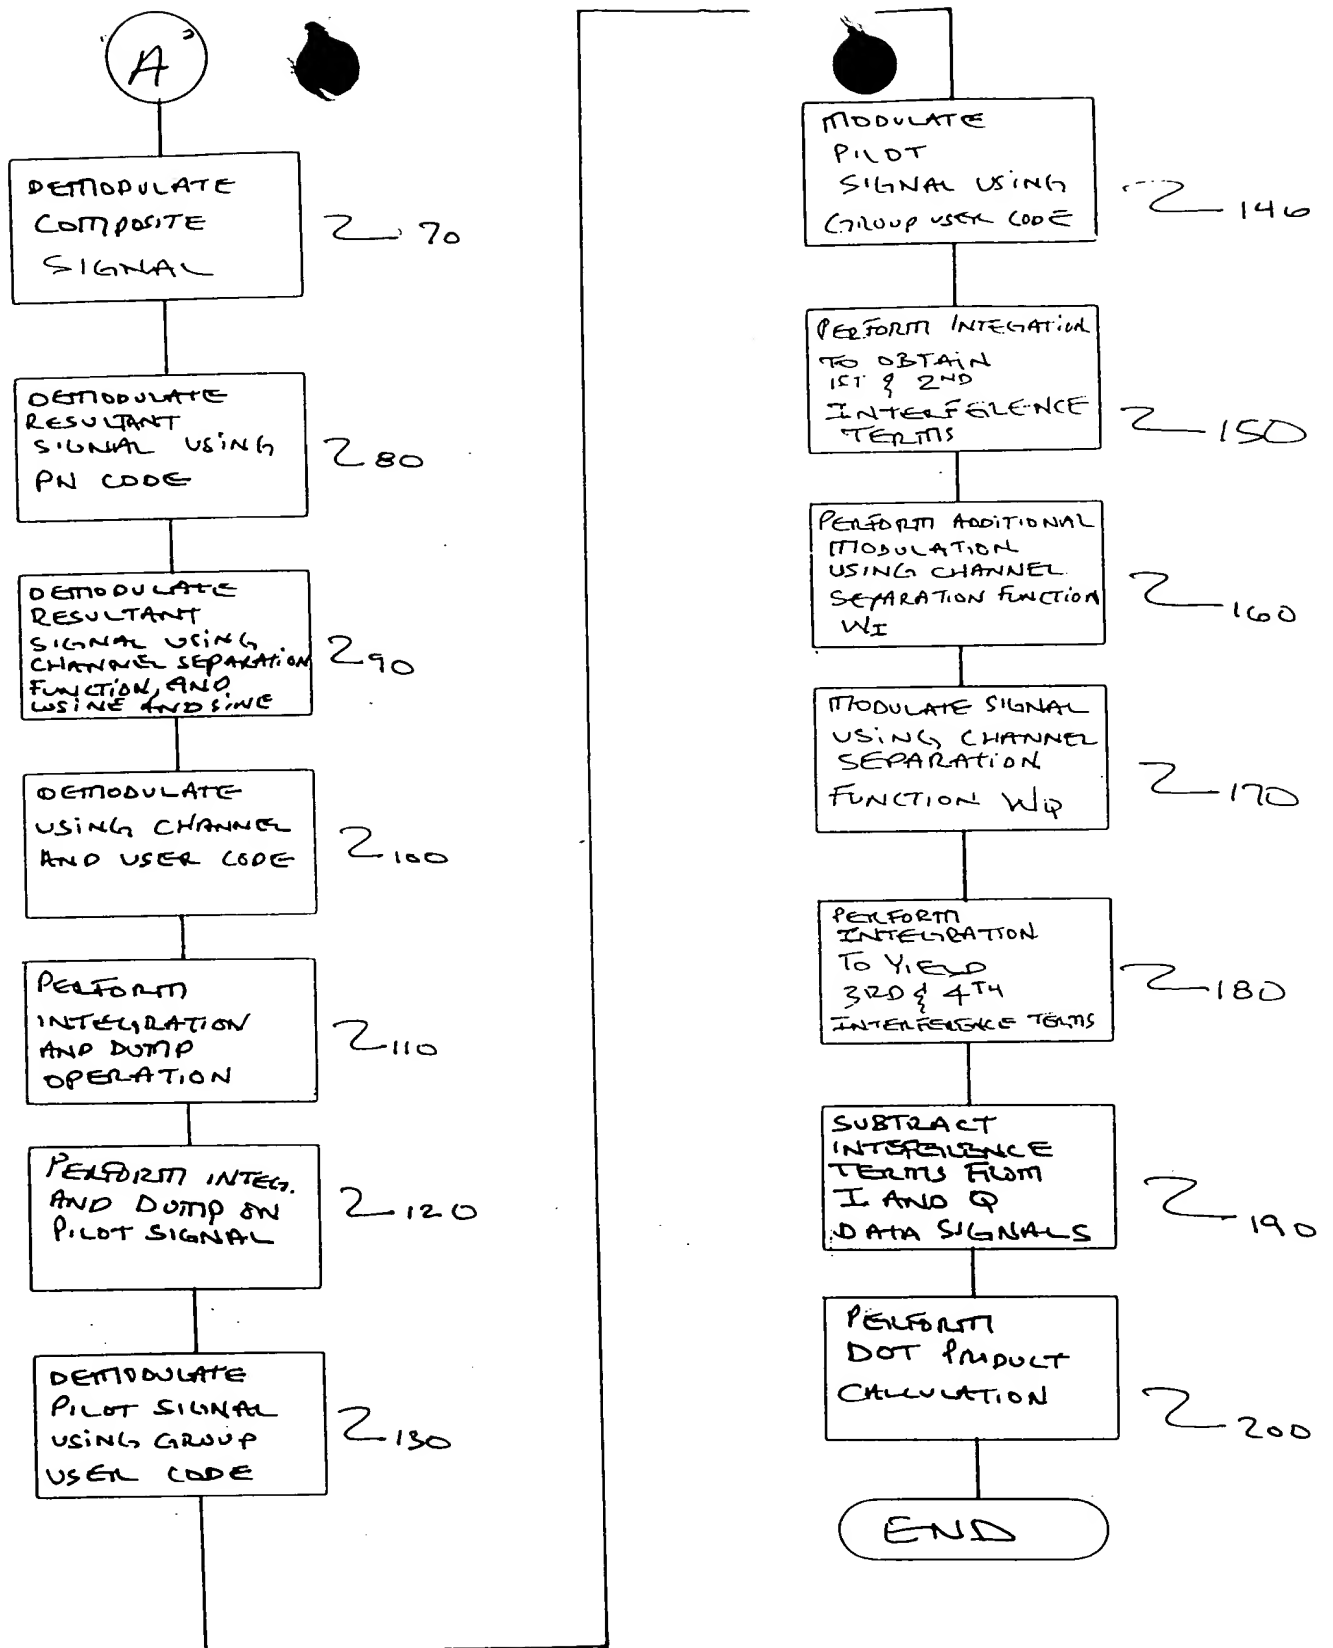 "A"
DEMODULATE
COMPOSITE
SIGNAL
70
DEMODULATE
RESULTANT
SIGNAL USING
PN CODE
80
DEMODULATE
RESULTANT
SIGNAL USING
CHANNEL SEPARATION
FUNCTION, AND
COSINE AND SINE
90
DEMODULATE
USING CHANNEL
AND USER CODE
100
PERFORM
INTEGRATION
AND DUMP
OPERATION
110
PERFORM INTEG.
AND DUMP ON
PILOT SIGNAL
120
DEMODULATE
PILOT SIGNAL
USING GROUP
USER CODE
130
MODULATE
PILOT
SIGNAL USING
GROUP USER CODE
140
PERFORM INTEGATION
TO OBTAIN
1ST & 2ND
INTERFERENCE
TERMS
150
PERFORM ADDITIONAL
MODULATION
USING CHANNEL
SEPARATION FUNCTION
WI
160
MODULATE SIGNAL
USING CHANNEL
SEPARATION
FUNCTION WQ
170
PERFORM
INTEGRATION
TO YIELD
3RD & 4TH
INTERFERENCE TERMS
180
SUBTRACT
INTEFERENCE
TERMS FROM
I AND Q
DATA SIGNALS
190
PERFORM
DOT PRODUCT
CALCULATION
200
END